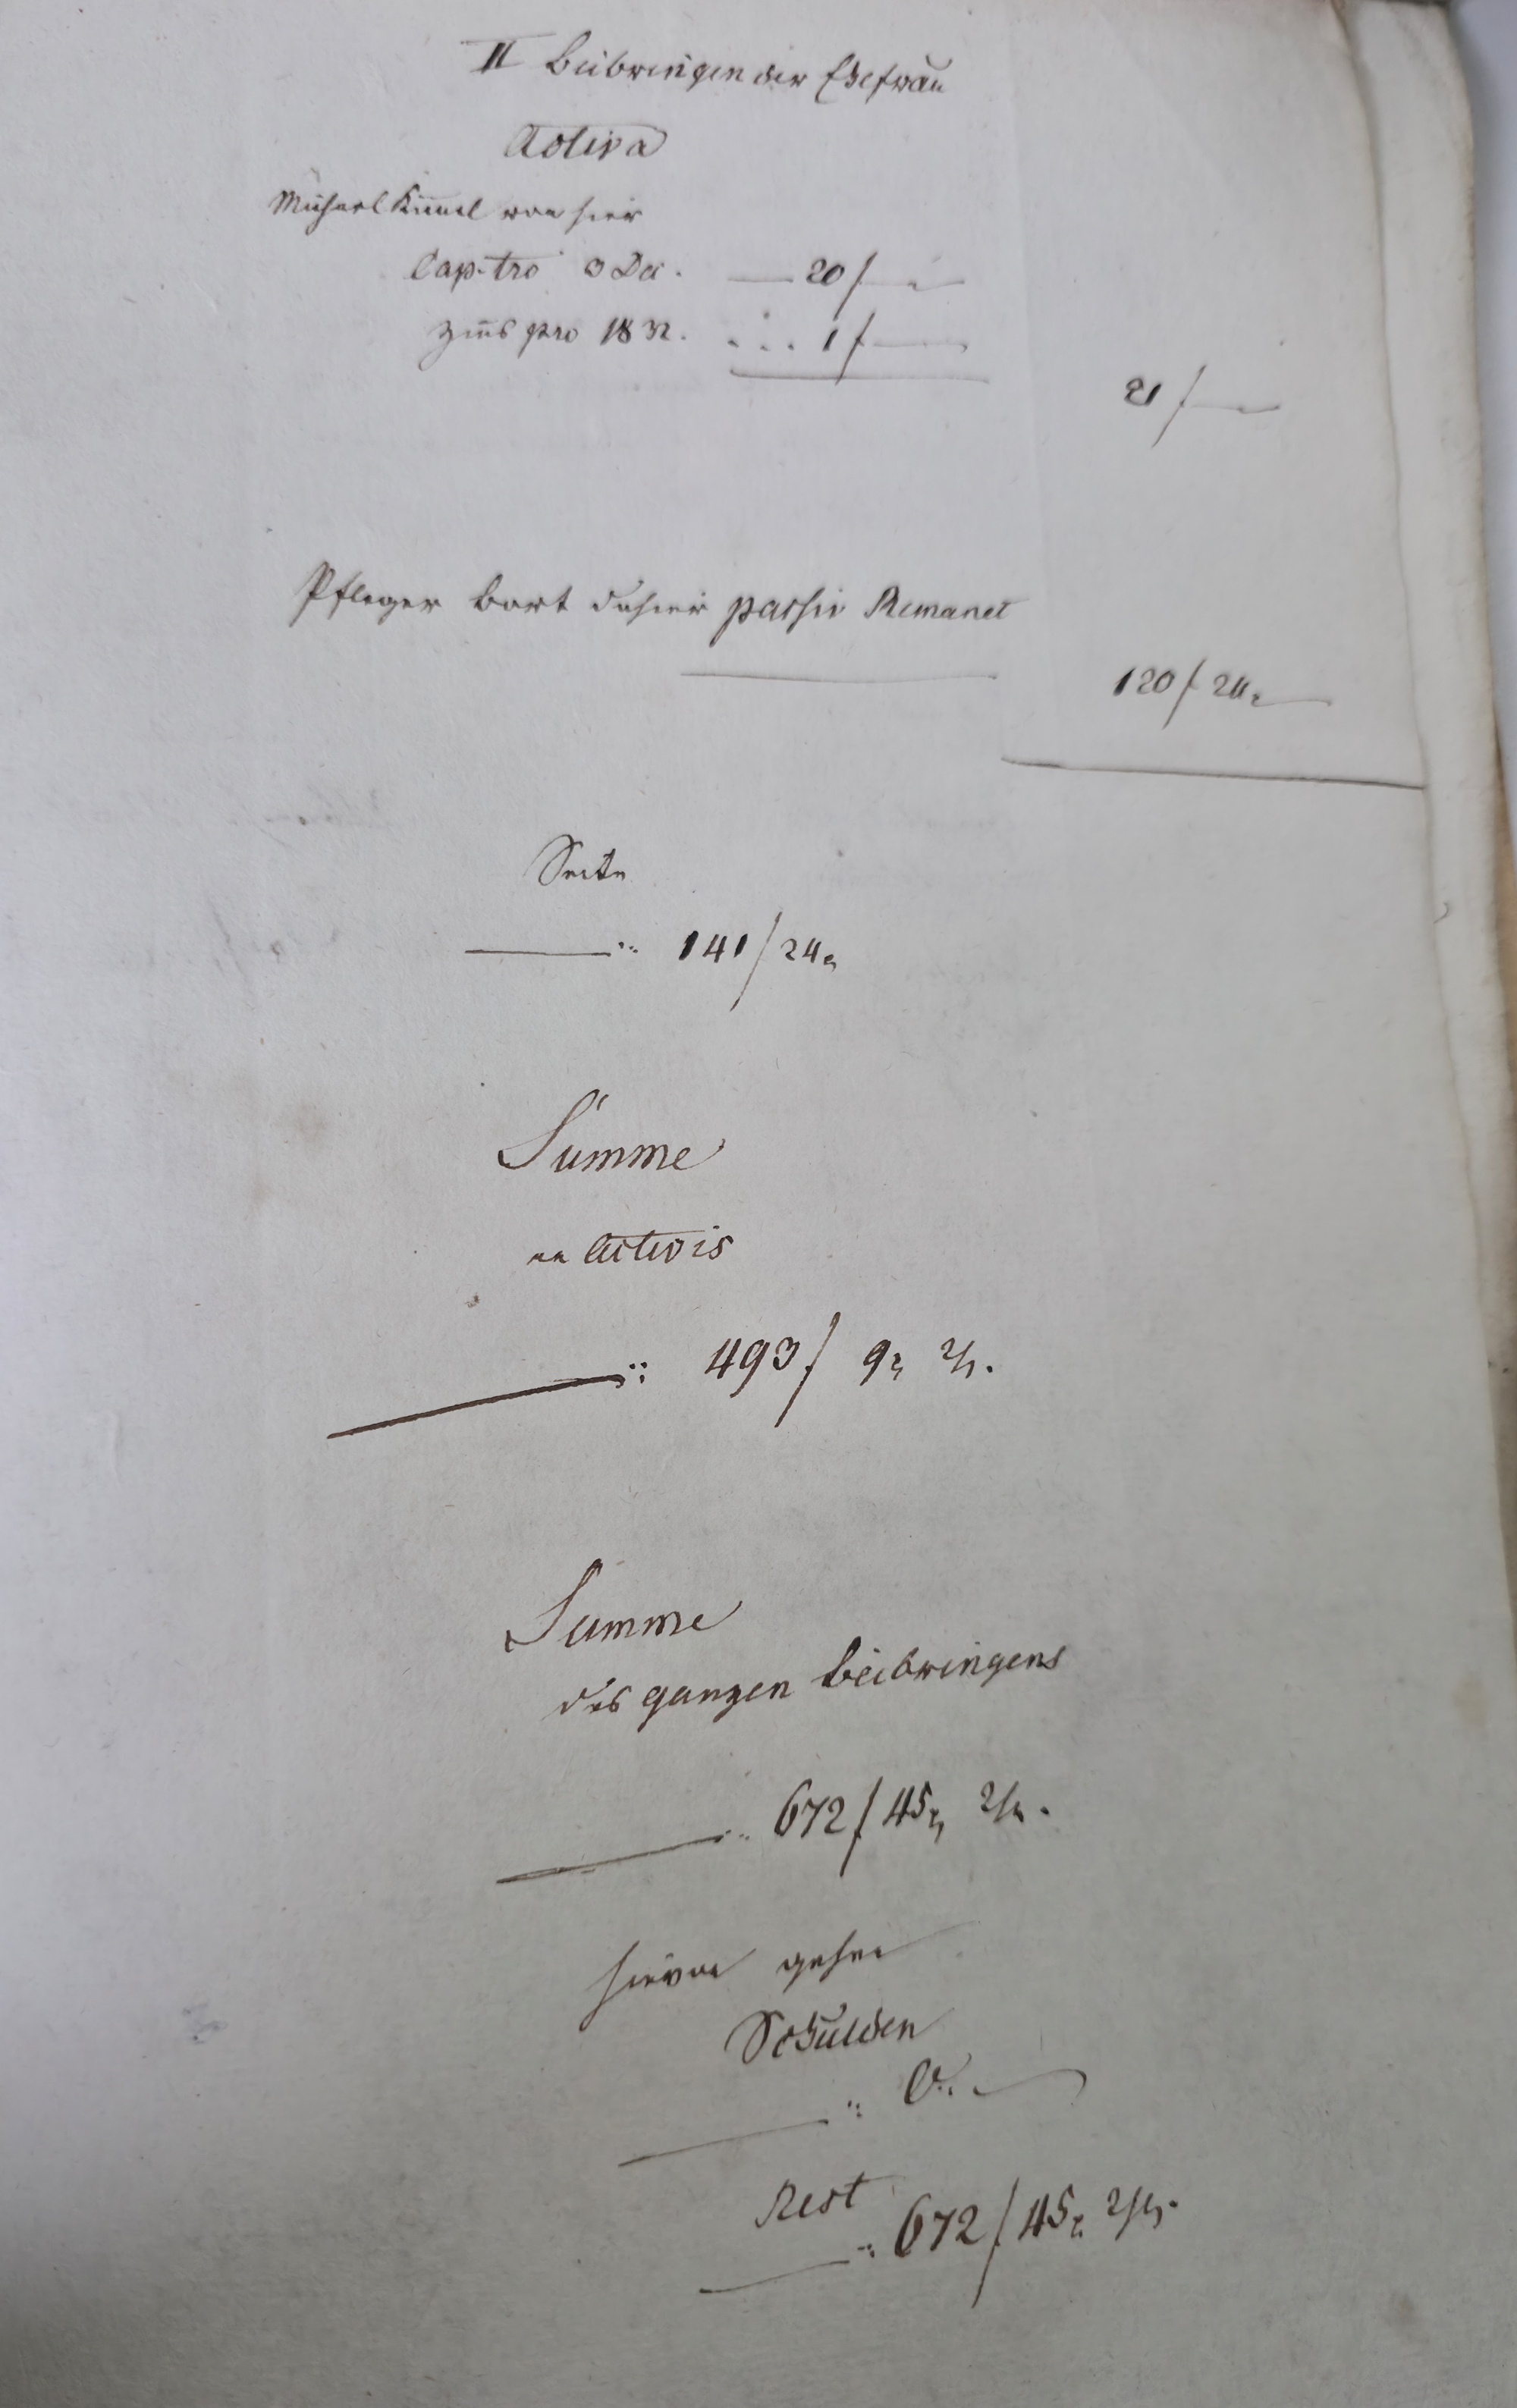 II Beibringen der Ehefrau
Activa
Michael Kimmel von hier
Cap. tro 3 Dec. 20 f
Zins pro 1832. 1 f
21 f
Pfleger Bort dahier passiv Remanet
120 f 24 x
Seite
141 f 24 x
Summe
an Activis
493 f 9 x 2 h.
Summe
des ganzen Beibringens
672 f 45 x 2 h.
hievon gehen
Schulden
0.
Rest
672 f 45 x 2 h.